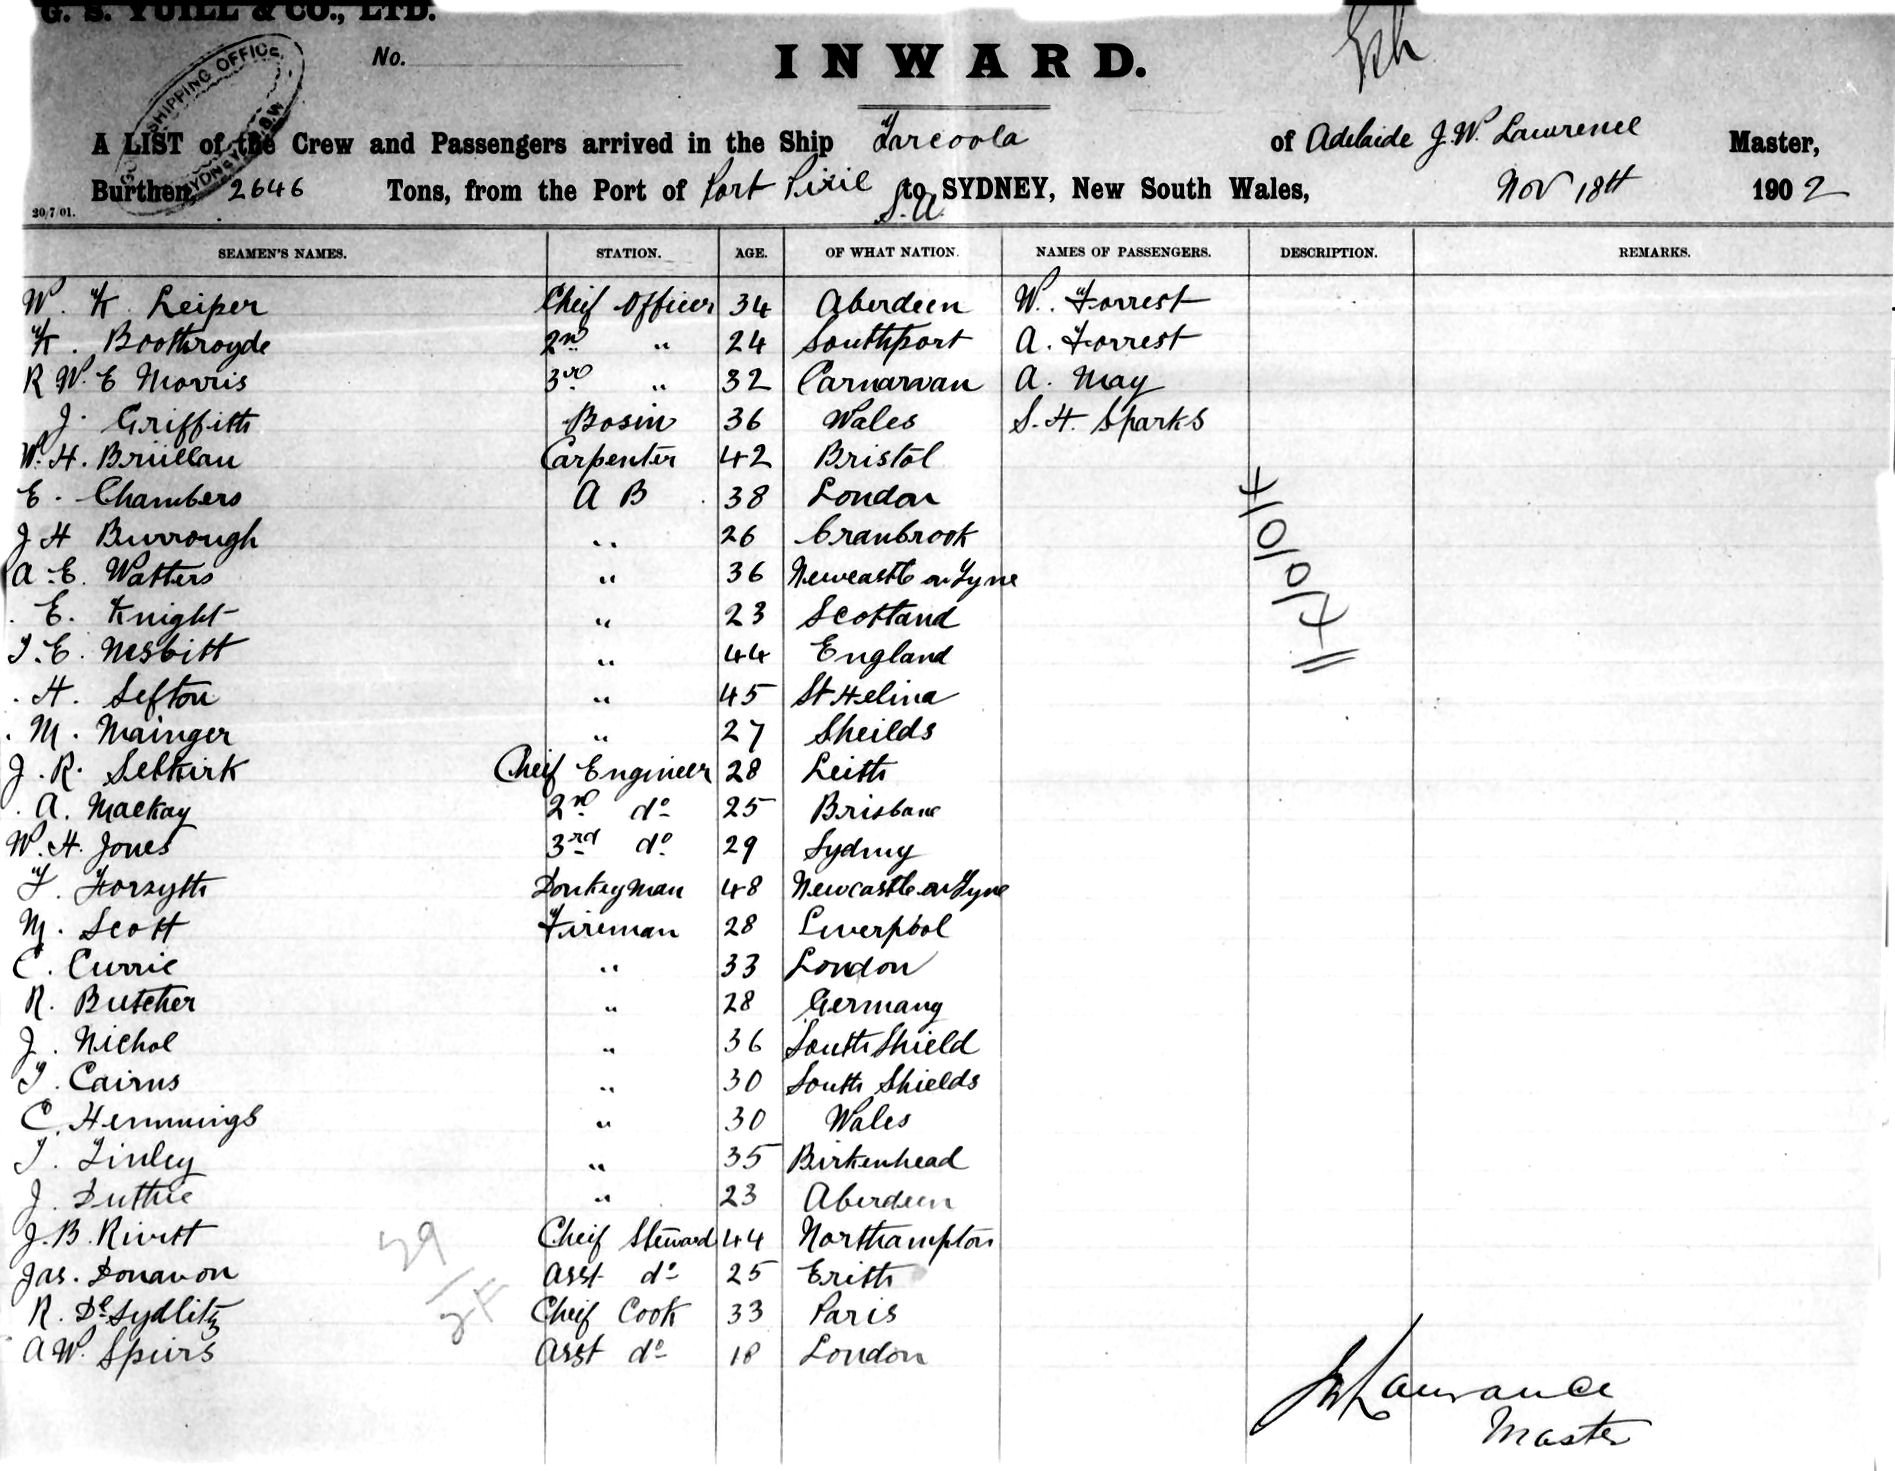 G. S. YUILL & CO., LTD.
No.
INWARD.
SHIPPING OFFICE
SYDNEY N.S.W
A LIST of the Crew and Passengers arrived in the Ship Tarcoola of Adelaide J. W. Lawrence Master,
Burthen, 2646 Tons, from the Port of Port Pirie S.A. to SYDNEY, New South Wales, Nov 18th 1902
20/7/01.
SEAMEN'S NAMES. STATION. AGE. OF WHAT NATION. NAMES OF PASSENGERS. DESCRIPTION. REMARKS.
W. K. Leiper Cheif Officer 34 Aberdeen W. Forrest
K. Boothroyde 2nd " 24 Southport A. Forrest
R W. E Morris 3rd " 32 Carnarvan A. May
J. Griffith Bosin 36 Wales S. H. Sparks
W. H. Carpenter 42 Bristol
E. Chambers A B 38 London
J H Burrough " 26 Cranbrook
A. E. Watters " 36 Newcastle on Tyne
E. Knight " 23 Scotland
T. E. Nesbitt " 44 England
H. Sefton " 45 St Helina
M. Mainger " 27 Sheilds
J. R. Selkirk Cheif Engineer 28 Leith
A. Mackay 2nd do 25 Brisbane
W. H. Jones 3rd do 29 Sydney
F. Forsyth Donkeyman 48 Newcastle on Tyne
M. Scott Fireman 28 Liverpool
C. Currie " 33 London
R. Butcher " 28 Germany
J. Nichol " 36 South Shield
T. Cairns " 30 South Shields
C. Hemmings " 30 Wales
T. Finley " 35 Birkenhead
J. Duthie " 23 Aberdeen
J. B. Rivett Cheif Steward 44 Northampton
Jas. Donavon Asst do 25 Erith
R. De Sydlitz Cheif Cook 33 Paris
A W. Spiers Asst do 18 London
J W Lawrance
Master